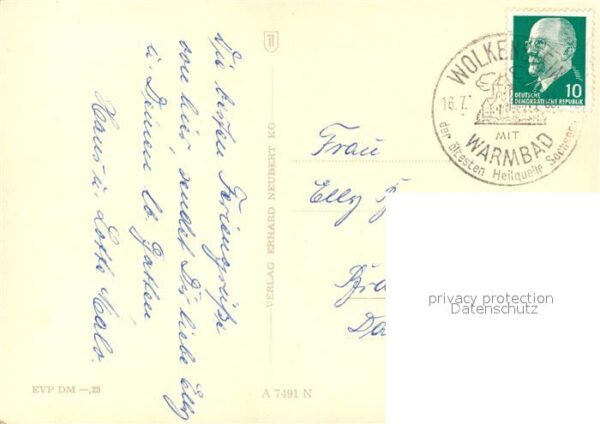 Die besten Feriengrüße
von hier, sendet Dir, liebe Elly
u. Deinem lb. Gatten
Hans u. Lotte
EVP DM —,25
VERLAG ERHARD NEUBERT KG
A 7491 N
WOLKEN
16.7.
MIT
WARMBAD
der ältesten Heilquelle Sachsens
DEUTSCHE
DEMOKRATISCHE REPUBLIK
10
Frau
Elly
privacy protection
Datenschutz